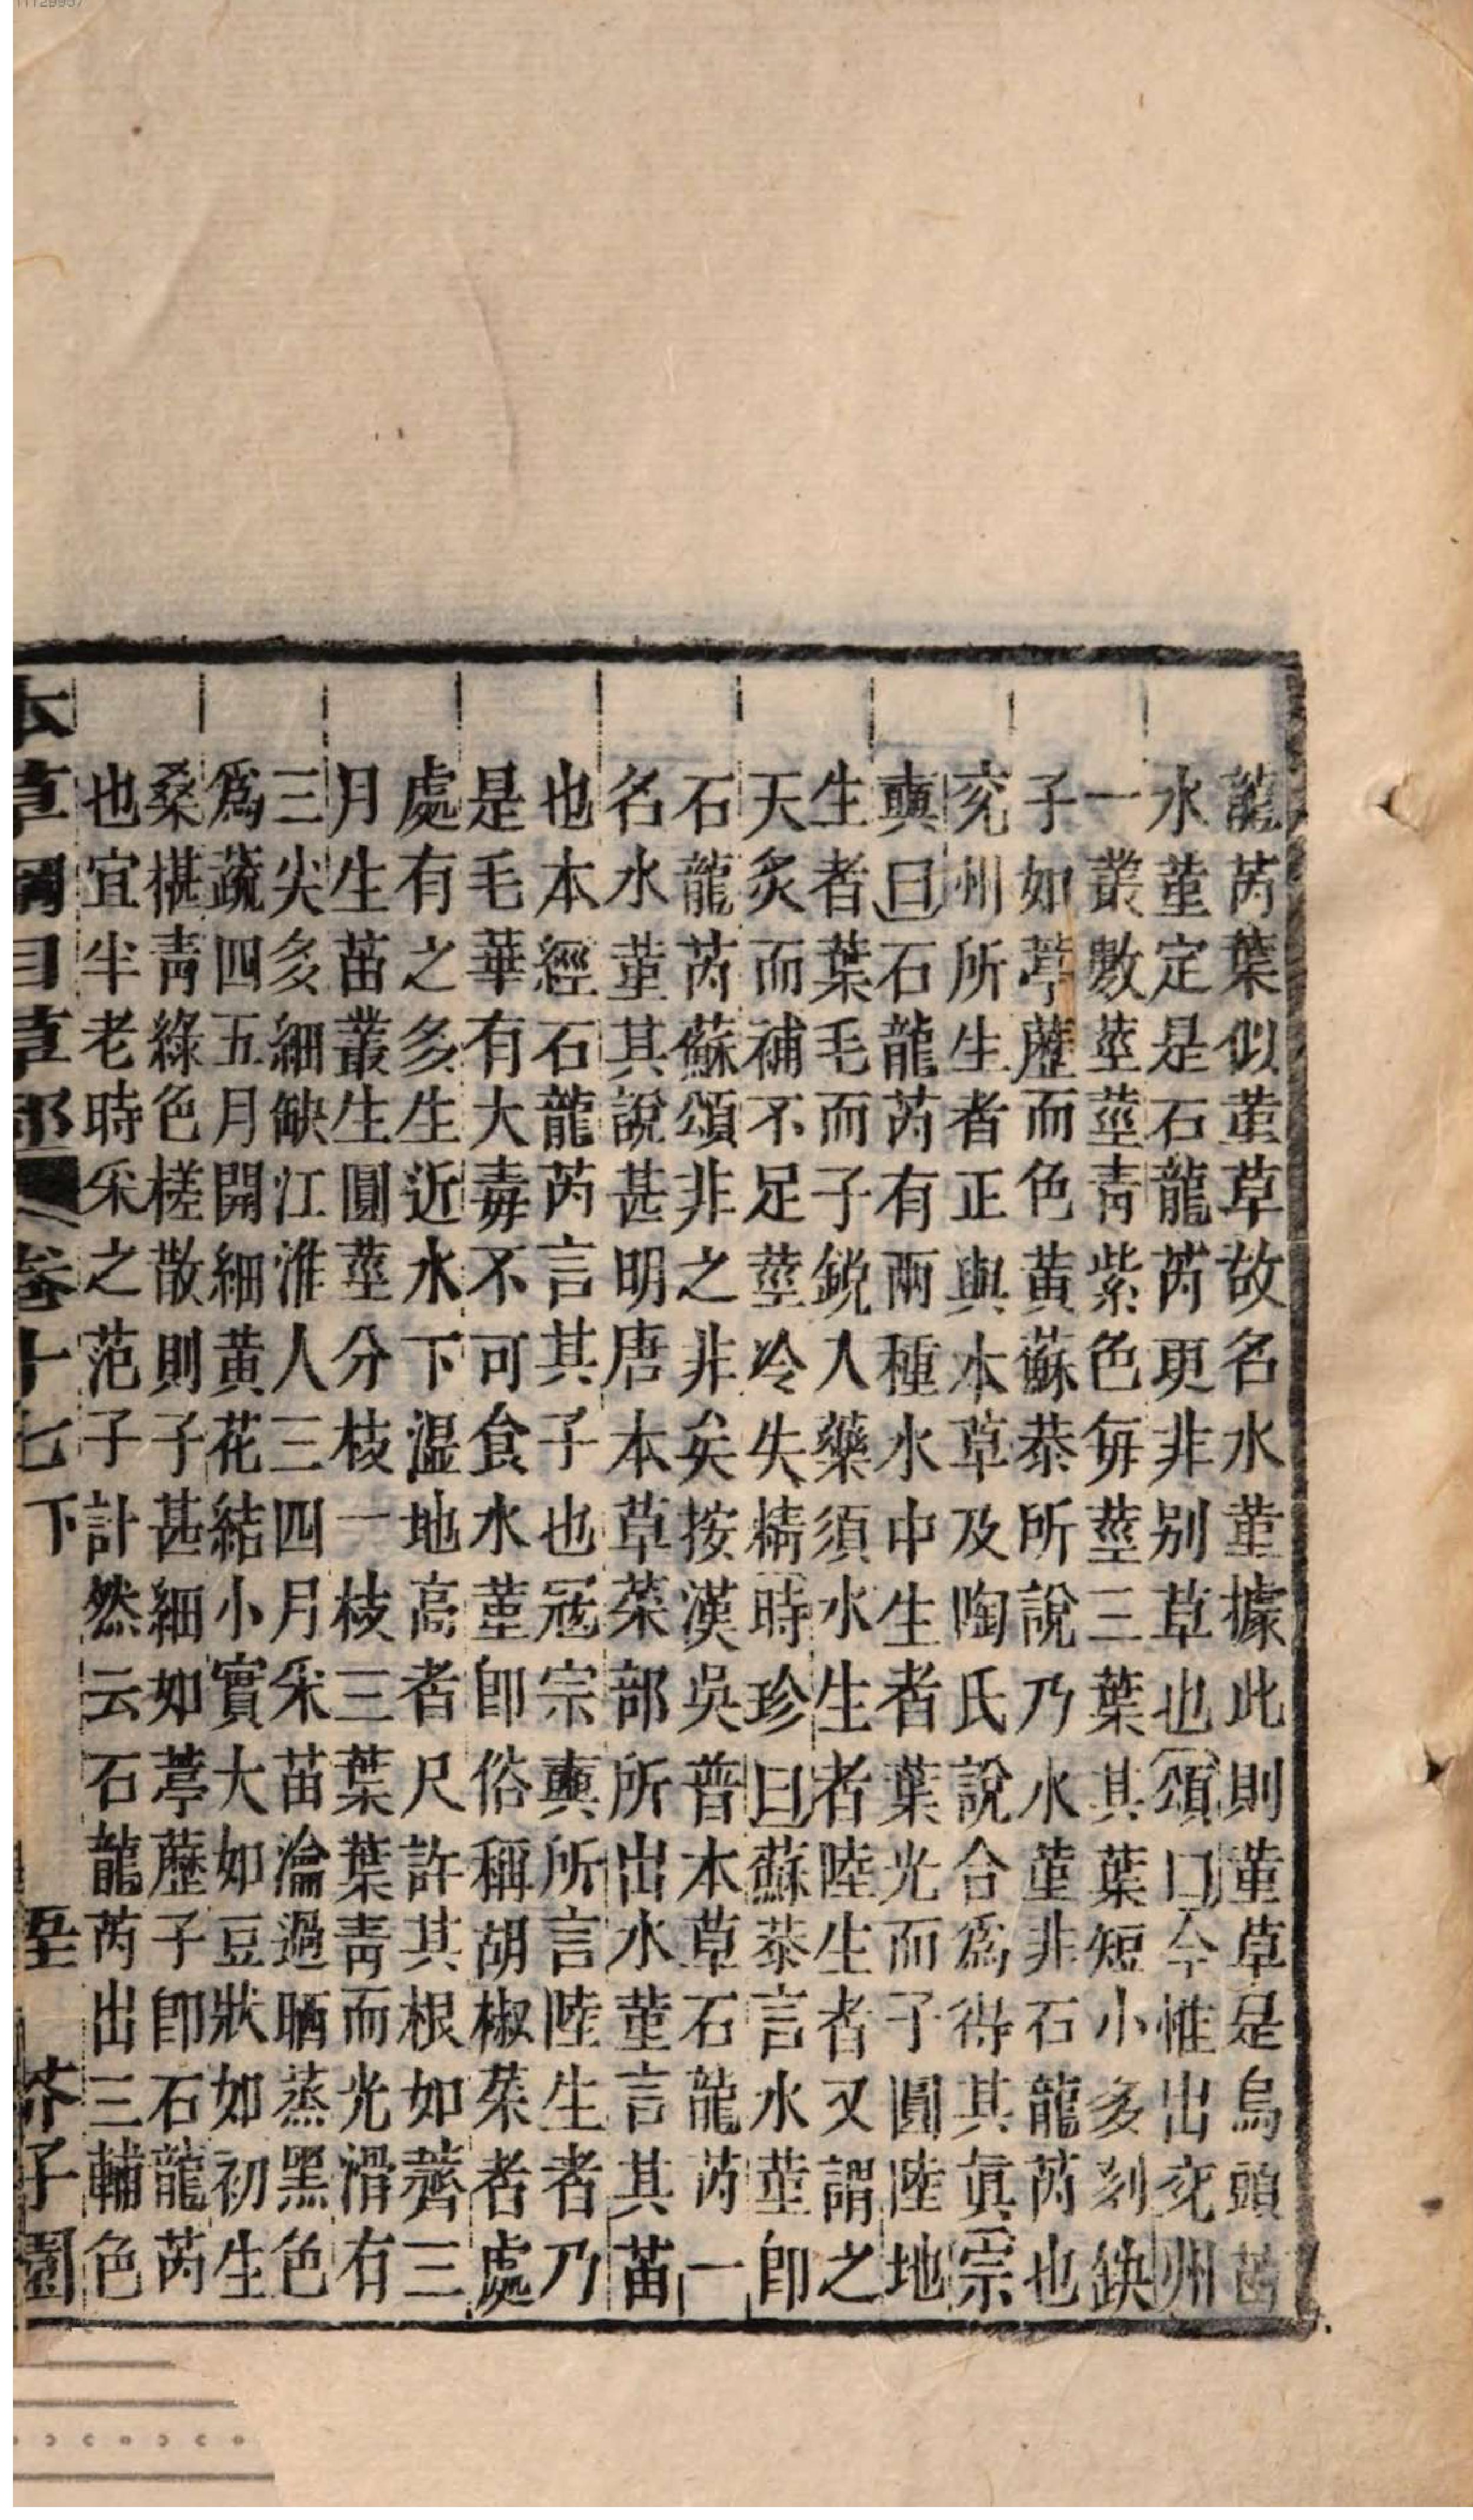 龍芮葉似堇草故名水堇據此則堇草是烏頭苗
水堇定是石龍芮更非別草也頌曰今惟出兗州
一叢數莖莖青紫色每莖三葉其葉短小多刻缺
子如葶藶而色黃蘇恭所說乃水堇非石龍芮也
兗州所生者正與本草及陶氏說合爲得其眞宗
奭曰石龍芮有兩種水中生者葉光而子圓陸地
生者葉毛而子銳入藥須水生者陸生者又謂之
天炙而補不足莖冷失精時珍曰蘇恭言水堇即
石龍芮蘇頌非之非矣按漢吳普本草石龍芮一
名水堇其說甚明唐本草菜部所出水堇言其苗
也本經石龍芮言其子也冦宗奭所言陸生者乃
是毛莖有大毒不可食水堇即俗稱胡椒菜者處
處有之多生近水下濕地高者尺許其根如薺三
月生苗叢生圓莖分枝一枝三葉葉青而光滑有
三尖多細缺江淮人三四月采苗瀹過晒蒸黑色
爲蔬四五月開細黃花結小實大如豆狀如初生
桑椹青綠色搓散則子甚細如葶藶子即石龍芮
也宜半老時采之范子計然云石龍芮出三輔色
本草綱目草部 卷十七下 芥子園